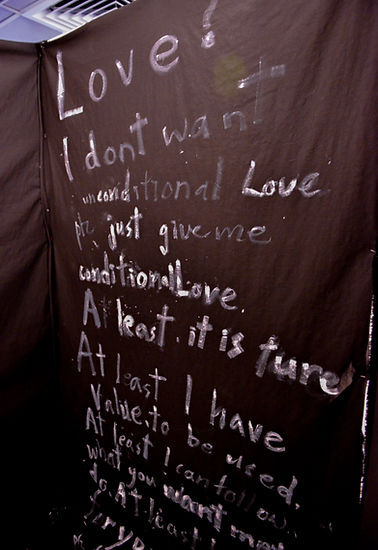 Love!
I dont want
unconditional Love
just give me
conditional Love.
At least. it is ture
At least I have
Value. to be used.
At least I can follow
what you want
do. At least